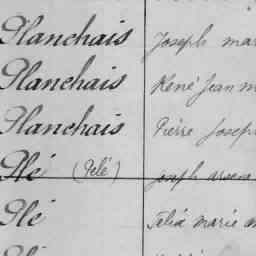 Planchais Joseph mar
Planchais René Jean m
Planchais Pierre Joseph
Plé (Pelé) Joseph arsene
Plé Félix marie